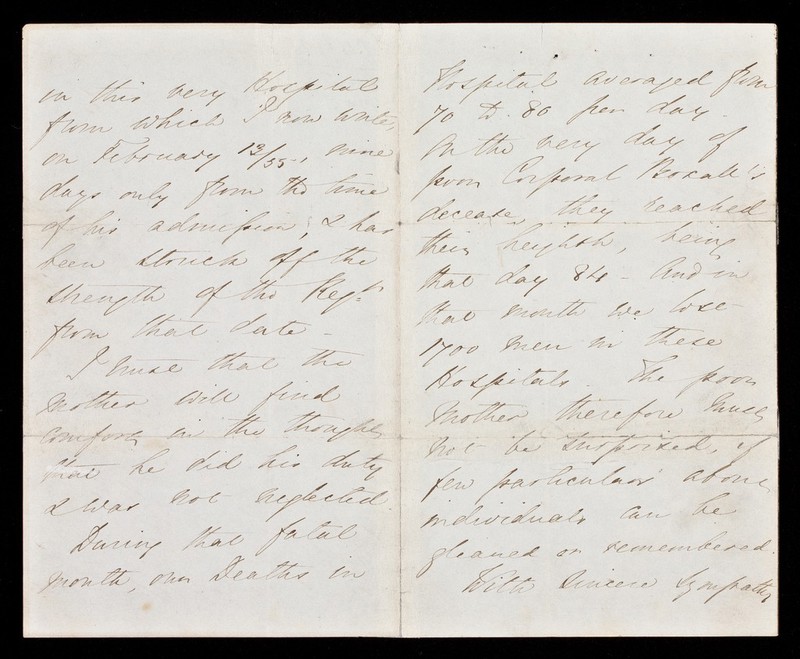 in this very Hospital
from which I now write,
on February 13/55, nine
days only from the time
of his admission, & has
been struck off the
strength of the Regt
from that date –
I trust that the
Mother will find
comfort in the thought
that he did his duty
& was not neglected.
During that fatal
month, our Deaths in
Hospital averaged from
70 to 80 per day.
On the very day of
poor Corporal Boxall's
decease, they reached
their heighth, being
that day 84 – And in
that month we lost
1700 men in these
Hospitals. The poor
Mother therefore must
not be surprised, if
few particulars about
individuals can be
gleaned or remembered.
With sincere sympathy